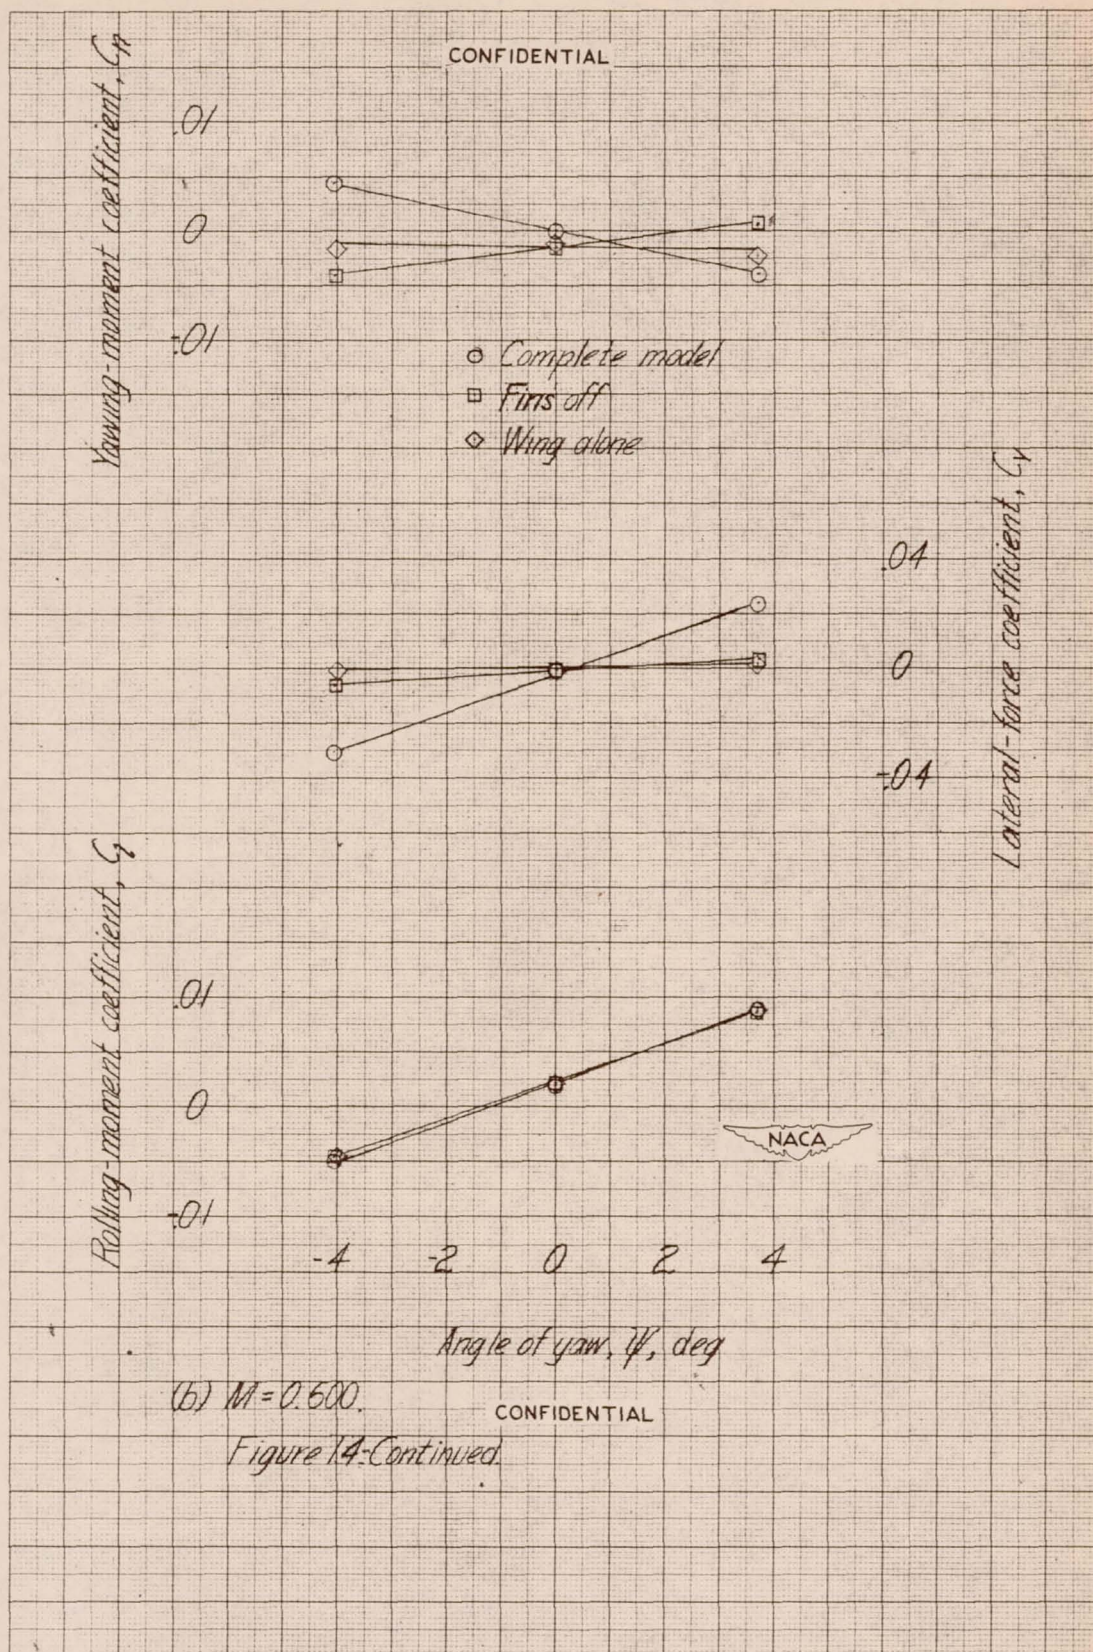 CONFIDENTIAL
Yawing-moment coefficient, Cn
.01
0
-.01
Complete model
Fins off
Wing alone
Lateral-force coefficient, CY
.04
0
-.04
Rolling-moment coefficient, Cl
.01
0
-.01
NACA
-4 -2 0 2 4
Angle of yaw, ψ, deg
(b) M = 0.600.
CONFIDENTIAL
Figure 14.-Continued.